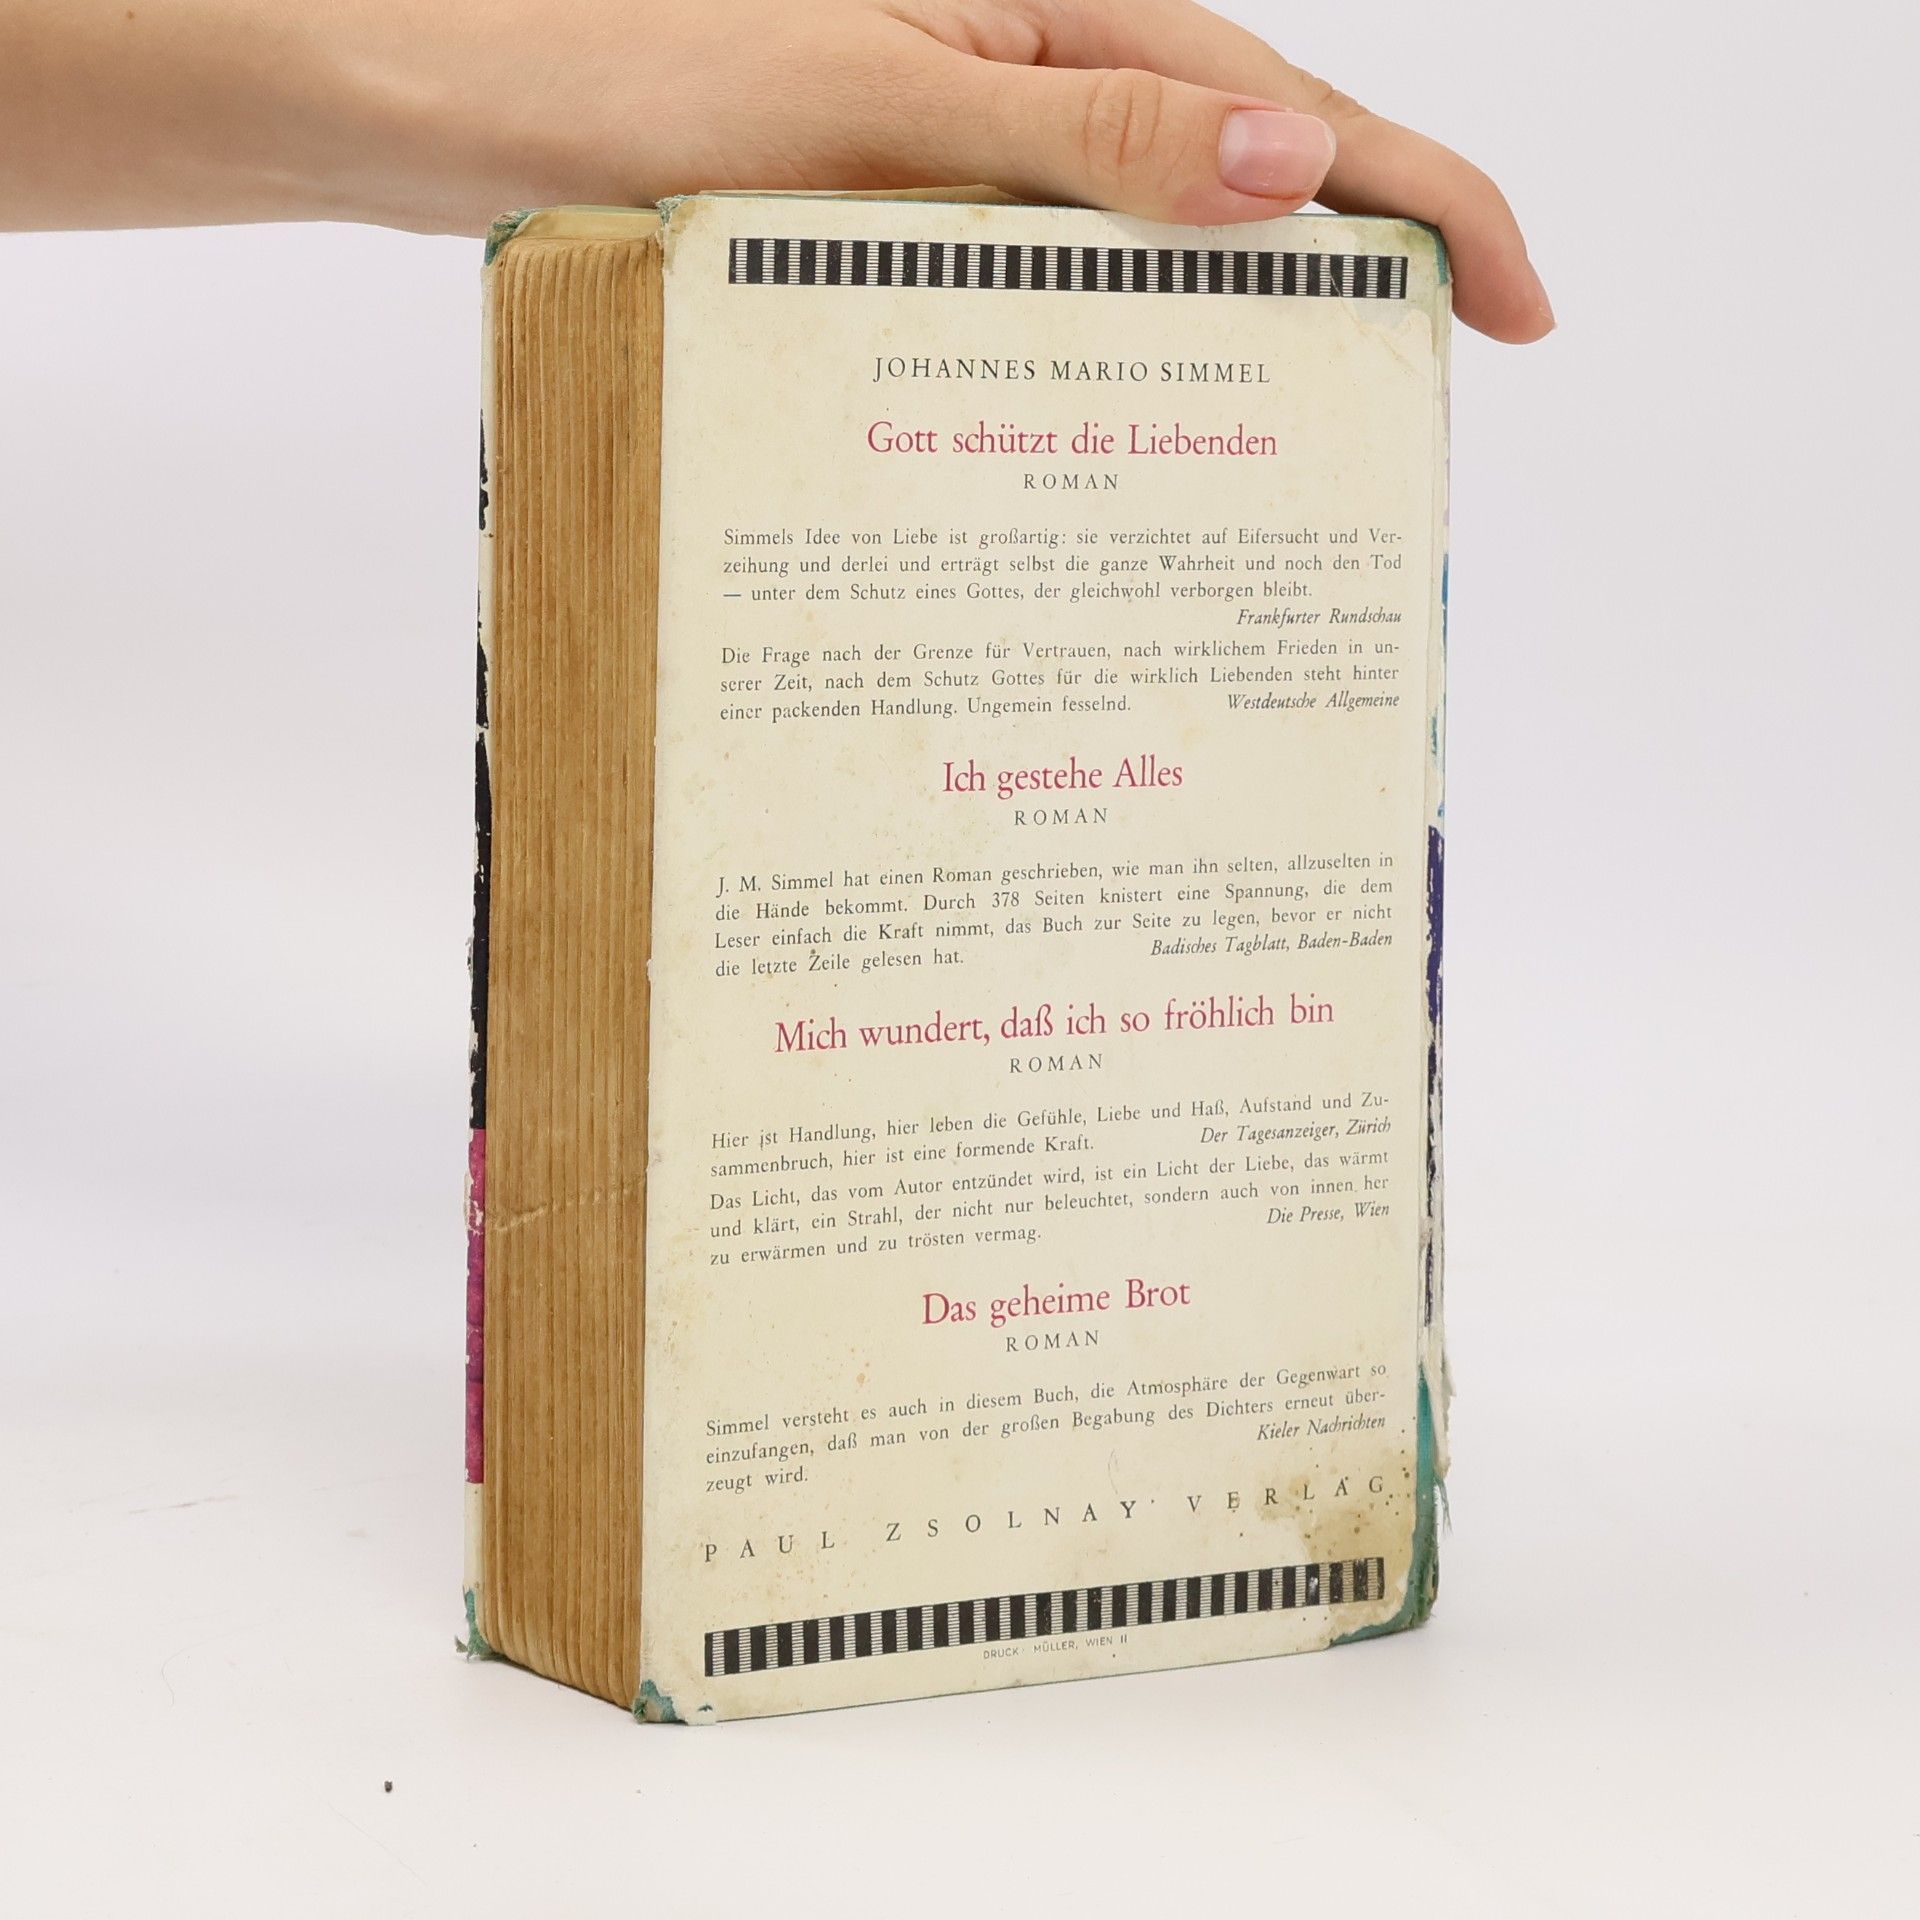 JOHANNES MARIO SIMMEL
Gott schützt die Liebenden
ROMAN
Simmels Idee von Liebe ist großartig: sie verzichtet auf Eifersucht und Ver-
zeihung und derlei und erträgt selbst die ganze Wahrheit und noch den Tod
— unter dem Schutz eines Gottes, der gleichwohl verborgen bleibt.
Frankfurter Rundschau
Die Frage nach der Grenze für Vertrauen, nach wirklichem Frieden in un-
serer Zeit, nach dem Schutz Gottes für die wirklich Liebenden steht hinter
einer packenden Handlung. Ungemein fesselnd. Westdeutsche Allgemeine
Ich gestehe Alles
ROMAN
J. M. Simmel hat einen Roman geschrieben, wie man ihn selten, allzuselten in
die Hände bekommt. Durch 378 Seiten knistert eine Spannung, die dem
Leser einfach die Kraft nimmt, das Buch zur Seite zu legen, bevor er nicht
die letzte Zeile gelesen hat. Badisches Tagblatt, Baden-Baden
Mich wundert, daß ich so fröhlich bin
ROMAN
Hier ist Handlung, hier leben die Gefühle, Liebe und Haß, Aufstand und Zu-
sammenbruch, hier ist eine formende Kraft. Der Tagesanzeiger, Zürich
Das Licht, das vom Autor entzündet wird, ist ein Licht der Liebe, das wärmt
und klärt, ein Strahl, der nicht nur beleuchtet, sondern auch von innen her
zu erwärmen und zu trösten vermag. Die Presse, Wien
Das geheime Brot
ROMAN
Simmel versteht es auch in diesem Buch, die Atmosphäre der Gegenwart so
einzufangen, daß man von der großen Begabung des Dichters erneut über-
zeugt wird. Kieler Nachrichten
PAUL ZSOLNAY VERLAG
DRUCK MÜLLER, WIEN II